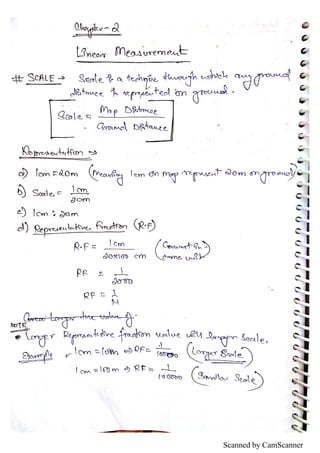 Chapter - 2
Linear Measurement
# SCALE → Scale is a technique through which any ground
distance is represented on ground.
Scale = Map Distance
Ground Distance
Representation →
a) 1cm = 20m (Meaning 1cm on map represent 20m on ground)
b) Scale = 1cm
20m
c) 1cm : 20m
d) Representative fraction (R.F)
R.F = 1cm
20×100 cm (Convert in same unit)
RF = 1
2000
RF = 1
NOTE
* Larger Representative fraction value will larger Scale.
Example 1cm = 10m ⇒ RF = (Larger Scale)
1cm = 100m ⇒ RF = (Smaller Scale)
Scanned by CamScanner